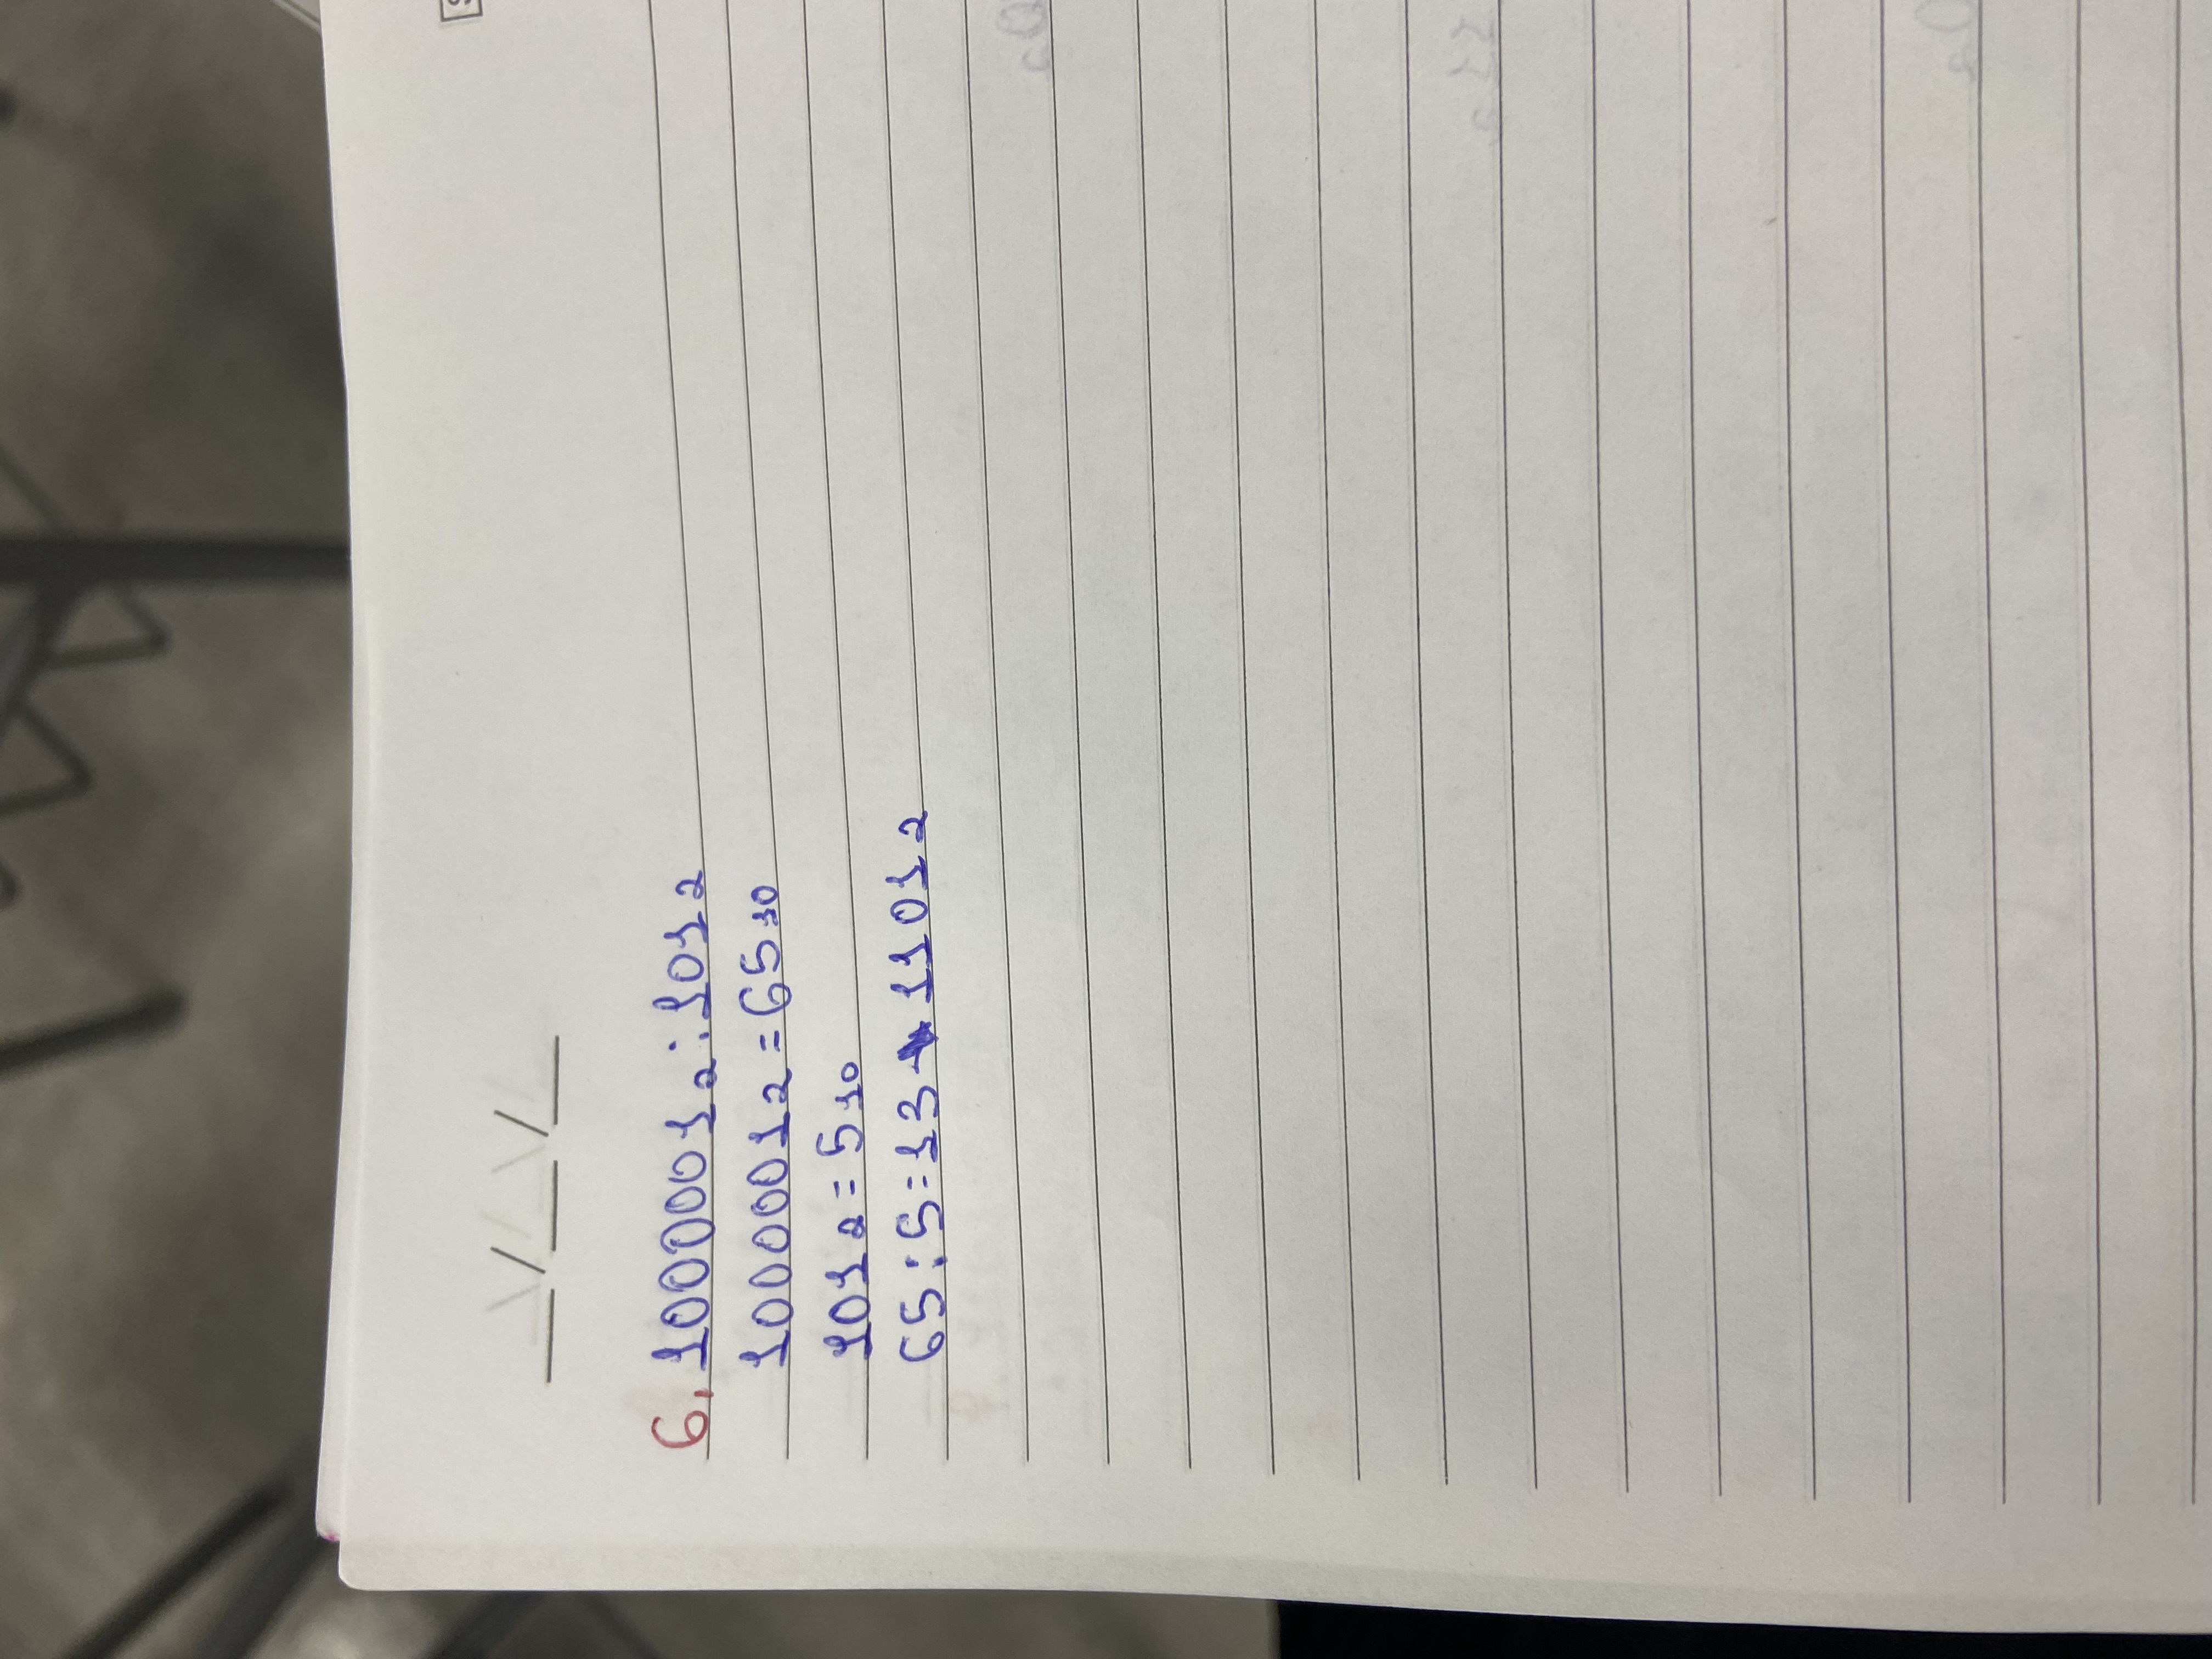 __/__/__
6. 1000001₂:101₂
1000001₂=65₁₀
101₂=5₁₀
65:5=13→1101₂